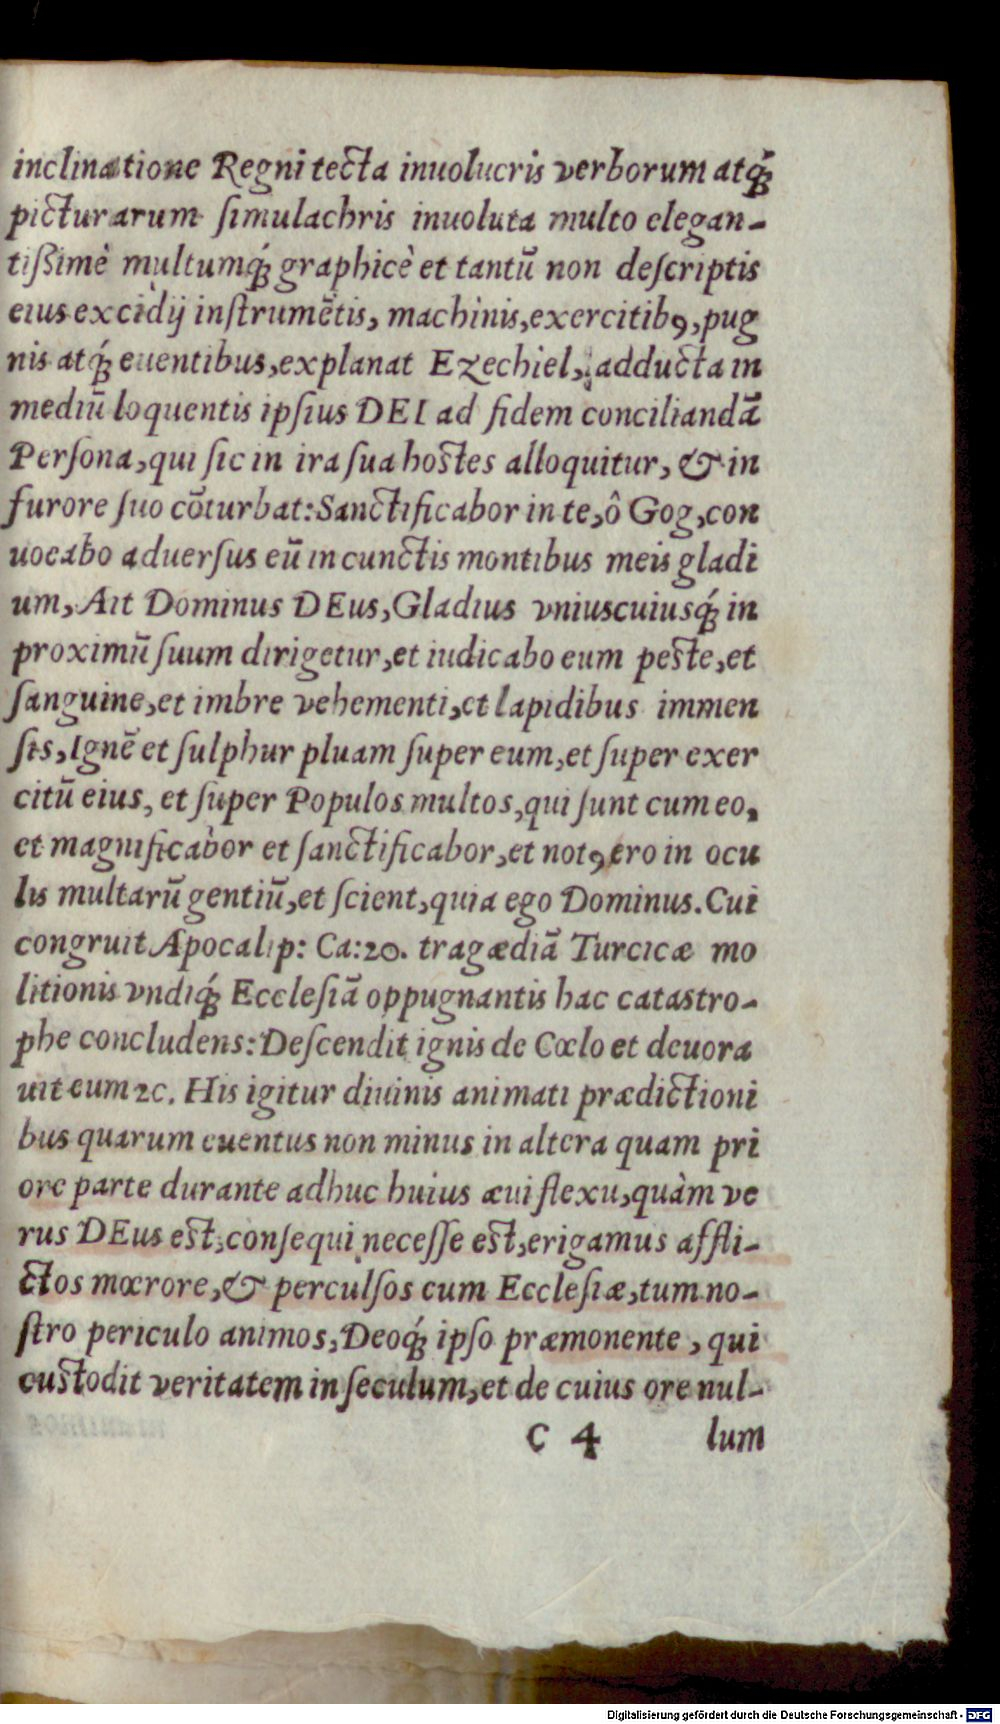 inclinatione Regni tecta inuolucris verborum atq́;
picturarum simulachris inuoluta multo elegan-
tißimè multumq́; graphicè et tantũ non deſcriptis
eius excidij inſtrumẽtis, machinis, exercitibꝰ, pug
nis atq́; euentibus, explanat Ezechiel, adducta in
mediũ loquentis ipſius DEI ad fidem conciliandã
Perſona, qui ſic in ira ſua hostes alloquitur, & in
furore ſuo cõturbat: Sanctificabor in te, ô Gog, con
uocabo aduerſus eũ in cunctis montibus meis gladi
um, Ait Dominus DEus, Gladius vniuscuiusq́; in
proximũ ſuum dirigetur, et iudicabo eum peste, et
ſanguine, et imbre vehementi, et lapidibus immen
ſis, Ignẽ et ſulphur pluam ſuper eum, et ſuper exer
citũ eius, et ſuper Populos multos, qui ſunt cum eo,
et magnificabor et ſanctificabor, et notꝰ ero in ocu
lis multarũ gentiũ, et ſcient, quia ego Dominus. Cui
congruit Apocalip: Ca: 20. tragædiã Turcicæ mo
litionis vndiq́; Eccleſiã oppugnantis hac catastro-
phe concludens: Deſcendit ignis de Cœlo et deuora
uit eum ꝛc. His igitur diuinis animati prædictioni
bus quarum euentus non minus in altera quam pri
ore parte durante adhuc huius æui flexu, quàm ve
rus DEus est, conſequi neceſſe est, erigamus affli-
ctos mœrore, & perculſos cum Eccleſiæ, tum no-
ſtro periculo animos, Deoq́; ipſo præmonente, qui
custodit veritatem in ſeculum, et de cuius ore nul-
C 4 lum
Digitalisierung gefördert durch die Deutsche Forschungsgemeinschaft - DFG